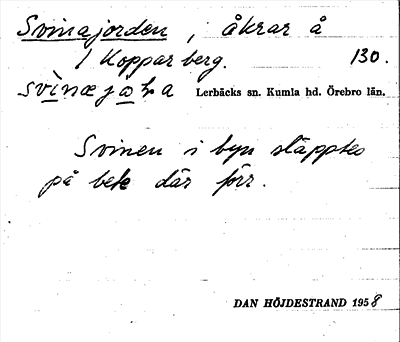 Svinajorden, åkrar å
1 Kopparberg. 130.
svìnæjo̲ꞎa Lerbäcks sn. Kumla hd. Örebro län.
Svinen i byn släpptes
på bete där förr.
DAN HÖJDESTRAND 1958